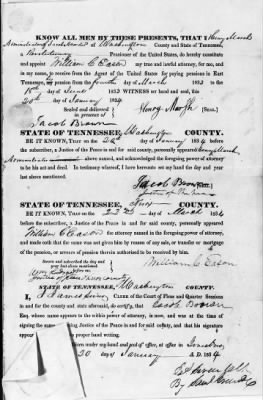 KNOW ALL MEN BY THESE PRESENTS, THAT I Henry Marsh
Administrator of at Washington County and State of Tennessee,
a Revolutionary Pensioner of the United States, do hereby constitute
and appoint William C Eason my true and lawful attorney, for me, and
in my name, to receive from the Agent of the United States for paying pensions in East
Tennessee, pension from the fourth day of March 1833 to the
18th day of June 1833 WITNESS my hand and seal, this
20th day of January 1834
Sealed and delivered
in presence of
Henry Marsh (Seal.)
Jacob Brown
STATE OF TENNESSEE, Washington COUNTY.
BE IT KNOWN, THAT on the 20th day of January 1834 before
the subscriber, a Justice of the Peace in and for said county, personally appeared Henry Marsh
Administrator above named, and acknowledged the foregoing power of attorney
to be his act and deed. In testimony whereof, I have hereunto set my hand the day and year
last above mentioned.
Jacob Brown
Justice of the Peace
STATE OF TENNESSEE, COUNTY.
BE IT KNOWN, THAT on the day of March 1834
before the subscriber, a Justice of the Peace in and for said county, personally appeared
William C Eason the attorney named in the foregoing power of attorney,
and made oath that the same was not given him by reason of any sale, or transfer or mortgage
of the pension, or arrears of pension therein authorised to be received by him.
Sworn and subscribed the day and
year last above mentioned—
before me.
William C. Eason
STATE OF TENNESSEE, Washington COUNTY.
I James CLERK of the Court of Pleas and Quarter Sessions
in and for the county and state aforesaid, do certify, that Jacob Brown
Esq. whose name appears to the within power of attorney, is now, and was at the time of
signing the same, an acting Justice of the Peace in and for said county, and that his signature
appears
Given under my hand and seal of office, at office in Jonesboro
20 day of January A.D. 1834
By